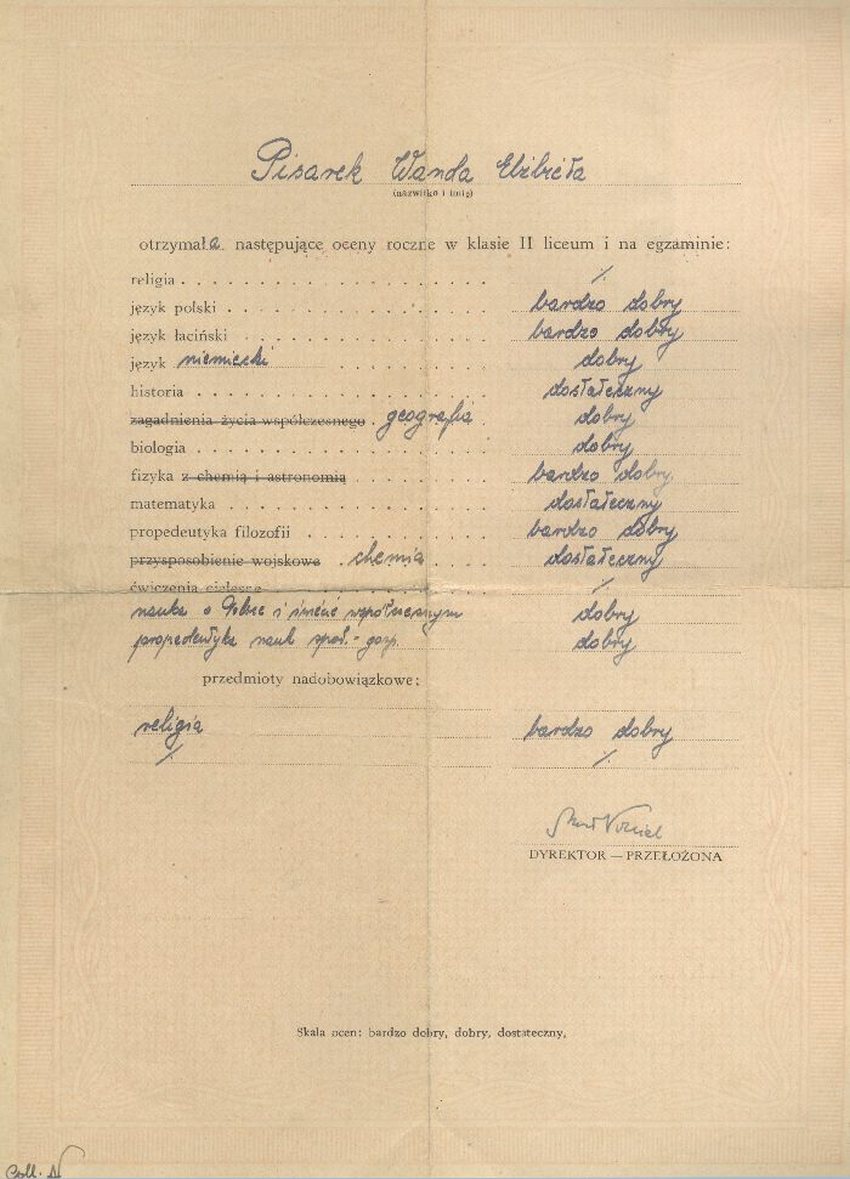 Pisarek Wanda Elżbieta
(nazwisko i imię)
otrzymała następujące oceny roczne w klasie II liceum i na egzaminie:
religia . . . . . . . . . . . . . . . . . . . ./.
język polski . . . . . . . . . . . . . . . . . bardzo dobry
język łaciński . . . . . . . . . . . . . . . . bardzo dobry
język niemiecki . . . . . . . . dobry
historia . . . . . . . . . . . . . . . . . . . dostateczny
zagadnienia życia współczesnego . geografia . dobry
biologia . . . . . . . . . . . . . . . . . . . dobry
fizyka z chemią i astronomią . . . . . . . . . bardzo dobry
matematyka . . . . . . . . . . . . . . . . . dostateczny
propedeutyka filozofii . . . . . . . . . . . . bardzo dobry
przysposobienie wojskowe . chemia . . . dostateczny
ćwiczenia cielesne . . . . . . . . . . . . ./.
nauka o Polsce i świecie współczesnym dobry
propedeutyka nauk społ.-gosp. dobry
przedmioty nadobowiązkowe:
religia bardzo dobry
./. ./.
DYREKTOR — PRZEŁOŻONA
Skala ocen: bardzo dobry, dobry, dostateczny,
Coll.